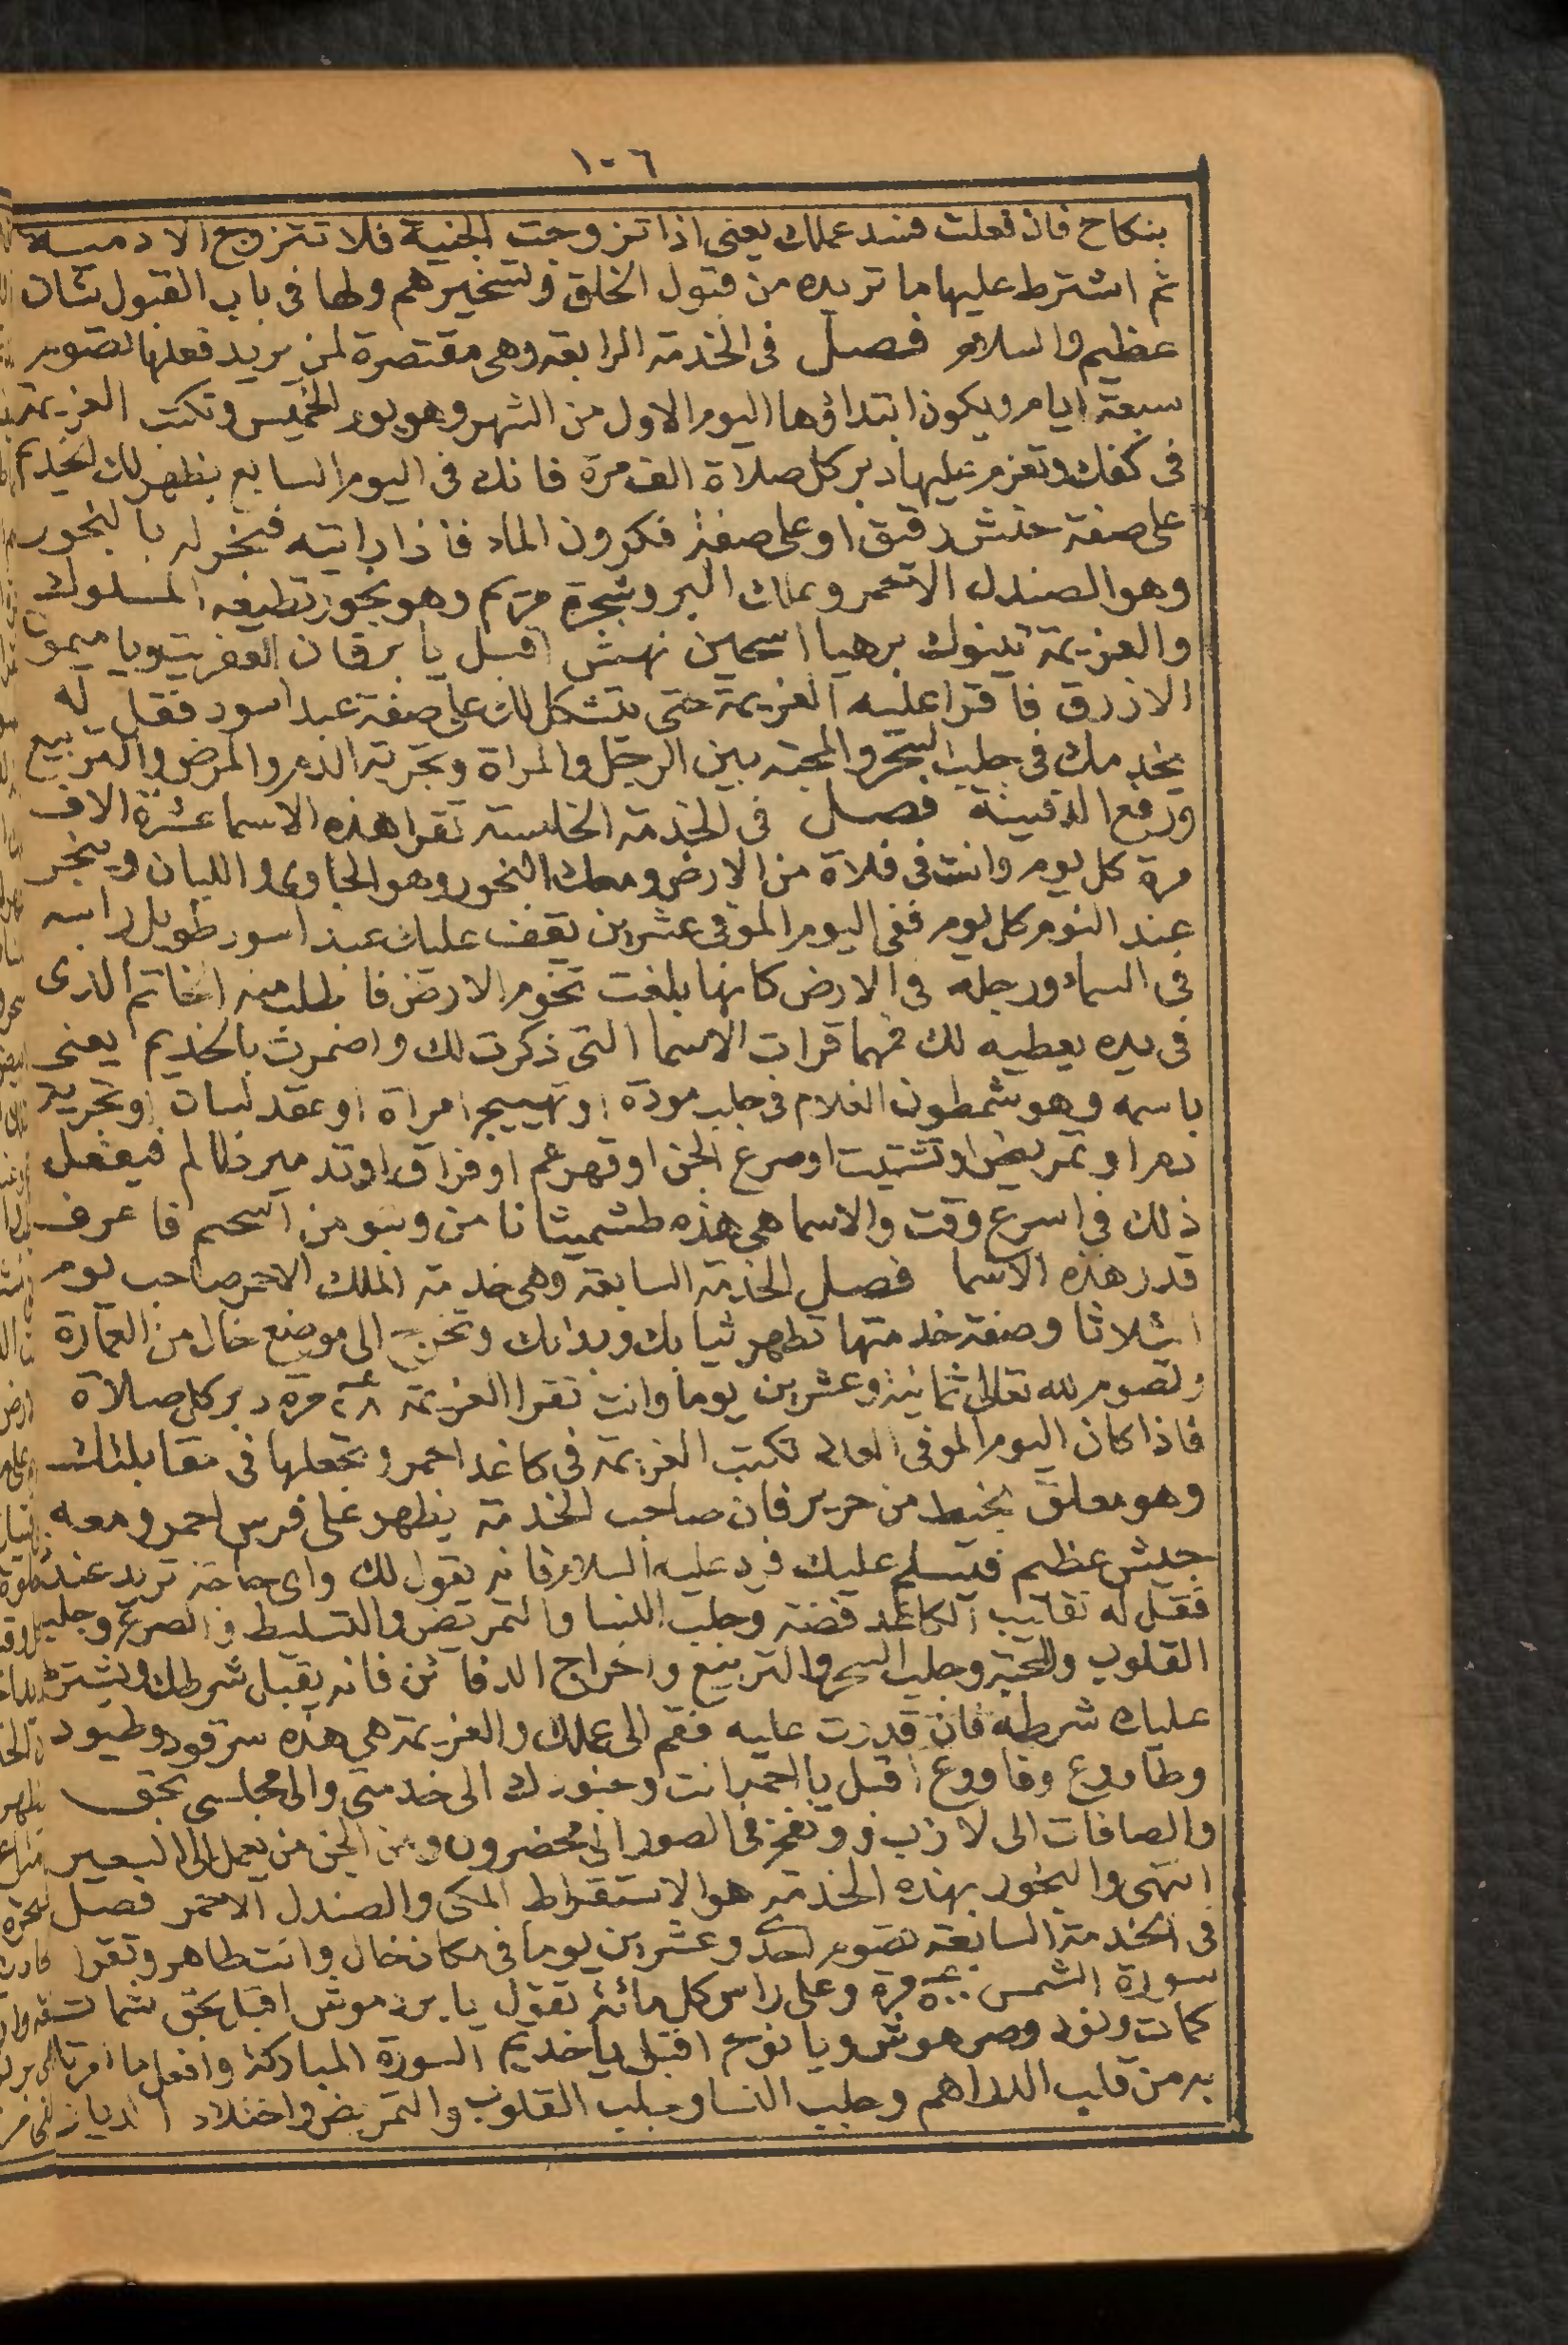 ١٠٦
بنكاح فان فعلت فسد عملك يعنى اذا تزوجت الجنية فلا تتزوج الادمية
ثم اشترط عليها ما تريده من قبول الخلق وتسخيرهم ولها فى باب القبول شان
عظيم والسلام فصل فى الخدمة الرابعة وهى مقتصرة لمن يريد فعلها تصوم
سبعة ايام ويكون ابتداؤها اليوم الاول من الشهر وهو يوم الخميس وتكتب العزيمة
فى كفك وتعزم عليها دبر كل صلاة الف مرة فانك فى اليوم السابع يظهر لك الخديم
على صفة حنش رقيق او على صفة فكرون الماء فاذا رايته فبخر له بالبخور
وهو الصندل الاحمر وعلك البر وشجرة مريم وهو بخور تطيعه الملوك
والعزيمة تينوك برهيا اسمين نهش اقبل يا برقان العفريت ويا ميمون
الازرق فاقرا عليه العزيمة حتى يتشكل لك على صفة عبد اسود فقل له
يخدمك فى جلب البحر والمحبة بين الرجل والمراة وتجرية الدم والمرض والتربيع
ورفع الدفينة فصل فى الخدمة الخامسة تقرا هذه الاسما عشرة الاف
مرة كل يوم وانت فى فلاة من الارض ومعك البخور وهو الجاوى واللبان وبخر
عند النوم كل يوم ففى اليوم الموفى عشرين يقف عليك عبد اسود طويل راسه
فى السماء ورجله فى الارض كانها بلغت تخوم الارض فاطلب منه الخاتم الذى
فى يده يعطيه لك فمهما قرات الاسما التى ذكرت لك واضمرت بالخديم يعنى
باسمه وهو شمطون الغلام فى جلب مودة او تهييج امراة او عقد لسان او تجرية
دم او تمريض او تشتيت او صرع الجن او قهرهم او فراق او تدمير ظالم فيفعل
ذلك فى اسرع وقت والاسما هى هذه طشميثا نا من وبنو من اسحم فاعرف
قدر هذه الاسما فصل الخدمة السابعة وهى خدمة الملك الاحمر صاحب يوم
الثلاثا وصفة خدمتها تطهر ثيابك وبدنك وتخرج الى موضع خال من العمارة
وتصوم لله تعالى ثمانية وعشرين يوما وانت تقرا العزيمة ٢٨ مرة دبر كل صلاة
فاذا كان اليوم الموفى تكتب العزيمة فى كاغد احمر وتجعلها فى مقابلتك
وهو معلق بخيط من حرير فان صاحب الخدمة يظهر على فرس احمر ومعه
جيش عظيم فيسلم عليك فرد عليه السلام فانه يقول لك واى حاجة تريد عندنا
فقل له تقليب الكاغد فضة وجلب النسا والتمريض والتسليط والصرع وجلب
القلوب والمحبة وجلب السحر والتربيع واخراج الدفائن فانه يقبل شرطك ويشترط
عليك شرطه فان قدرت عليه فقم الى عملك والعزيمة هى هذه سرقود وطيود
وطاروع وفاووع اقبل يا احمر انت وجنودك الى خدمتى والى مجلسى بحق
والصافات الى لازب ونفخ فى الصور الى محضرون ومن الجن من يعمل الى السعير
انتهى والبخور بهذه الخدمة هو الاستقراط المكى والصندل الاحمر فصل
فى الخدمة السابعة تصوم احد وعشرين يوما فى مكان خال وانت طاهر وتقرا
سورة الشمس ٥٠٠ مرة وعلى راس كل مائة تقول يا برد موش اقبل بحق شما
كمات ونود وصرهوش ويا نوخ اقبل يا خديم السورة المباركة وافعل ما امرتك
به من قلب الدراهم وجلب النسا وجلب القلوب والتمريض واخلاء الديار